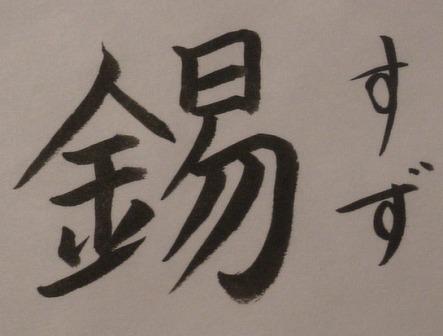 錫
すず